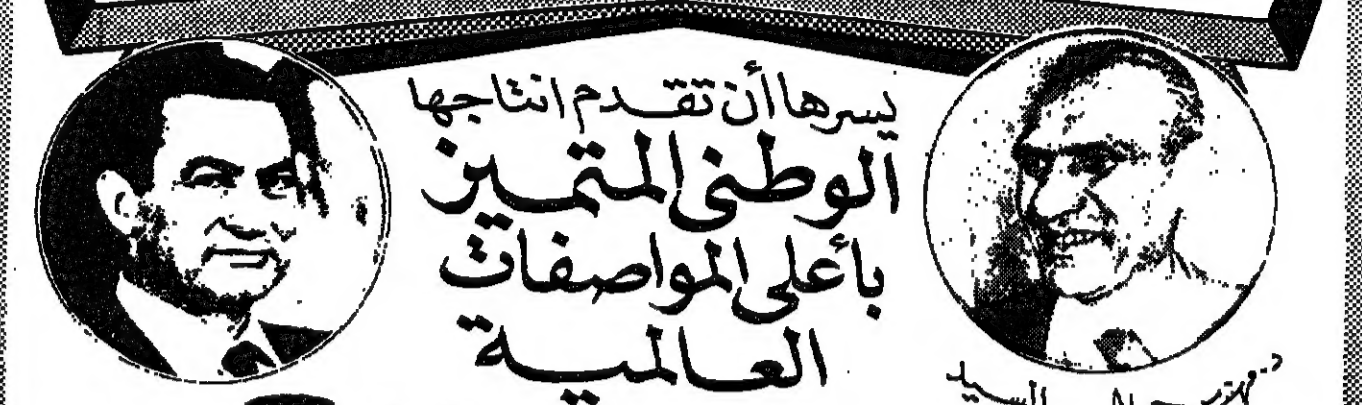 يسرها أن تقدم انتاجها
الوطنى المتميز
بأعلى المواصفات
العالمية
السيد